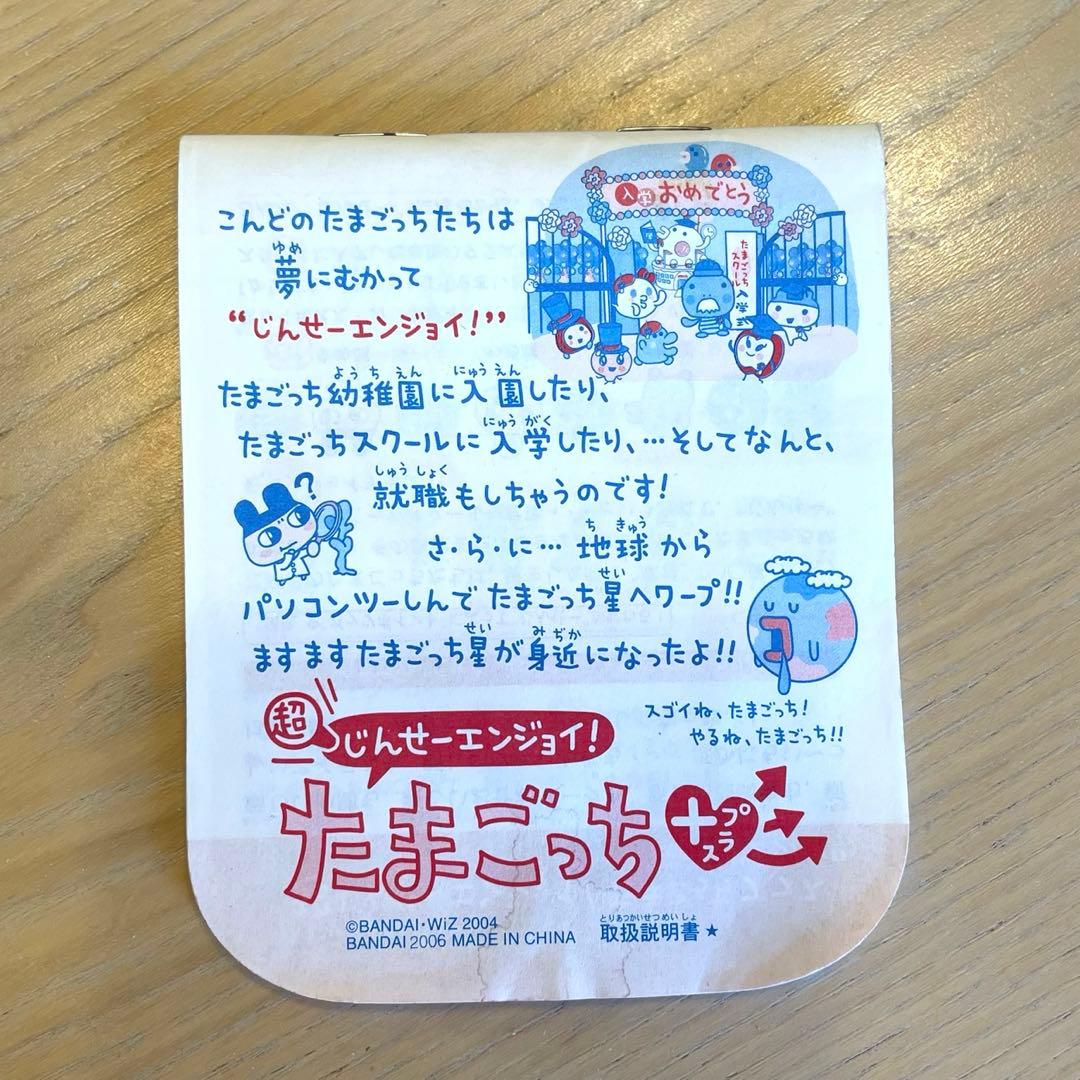 入学おめでとう
たまごっちスクール入学式
こんどのたまごっちたちは
ゆめ
夢にむかって
“じんせーエンジョイ！”
ようちえん にゅうえん
たまごっち幼稚園に入園したり、
にゅうがく
たまごっちスクールに入学したり、…そしてなんと、
しゅうしょく
就職もしちゃうのです！
?
ちきゅう
さ・ら・に…地球から
せい
パソコンツーしんでたまごっち星へワープ!!
せい みぢか
ますますたまごっち星が身近になったよ!!
スゴイね、たまごっち！
やるね、たまごっち!!
超じんせーエンジョイ！
たまごっち＋プラス
©BANDAI・WiZ 2004
BANDAI 2006 MADE IN CHINA
とりあつかいせつめいしょ
取扱説明書★